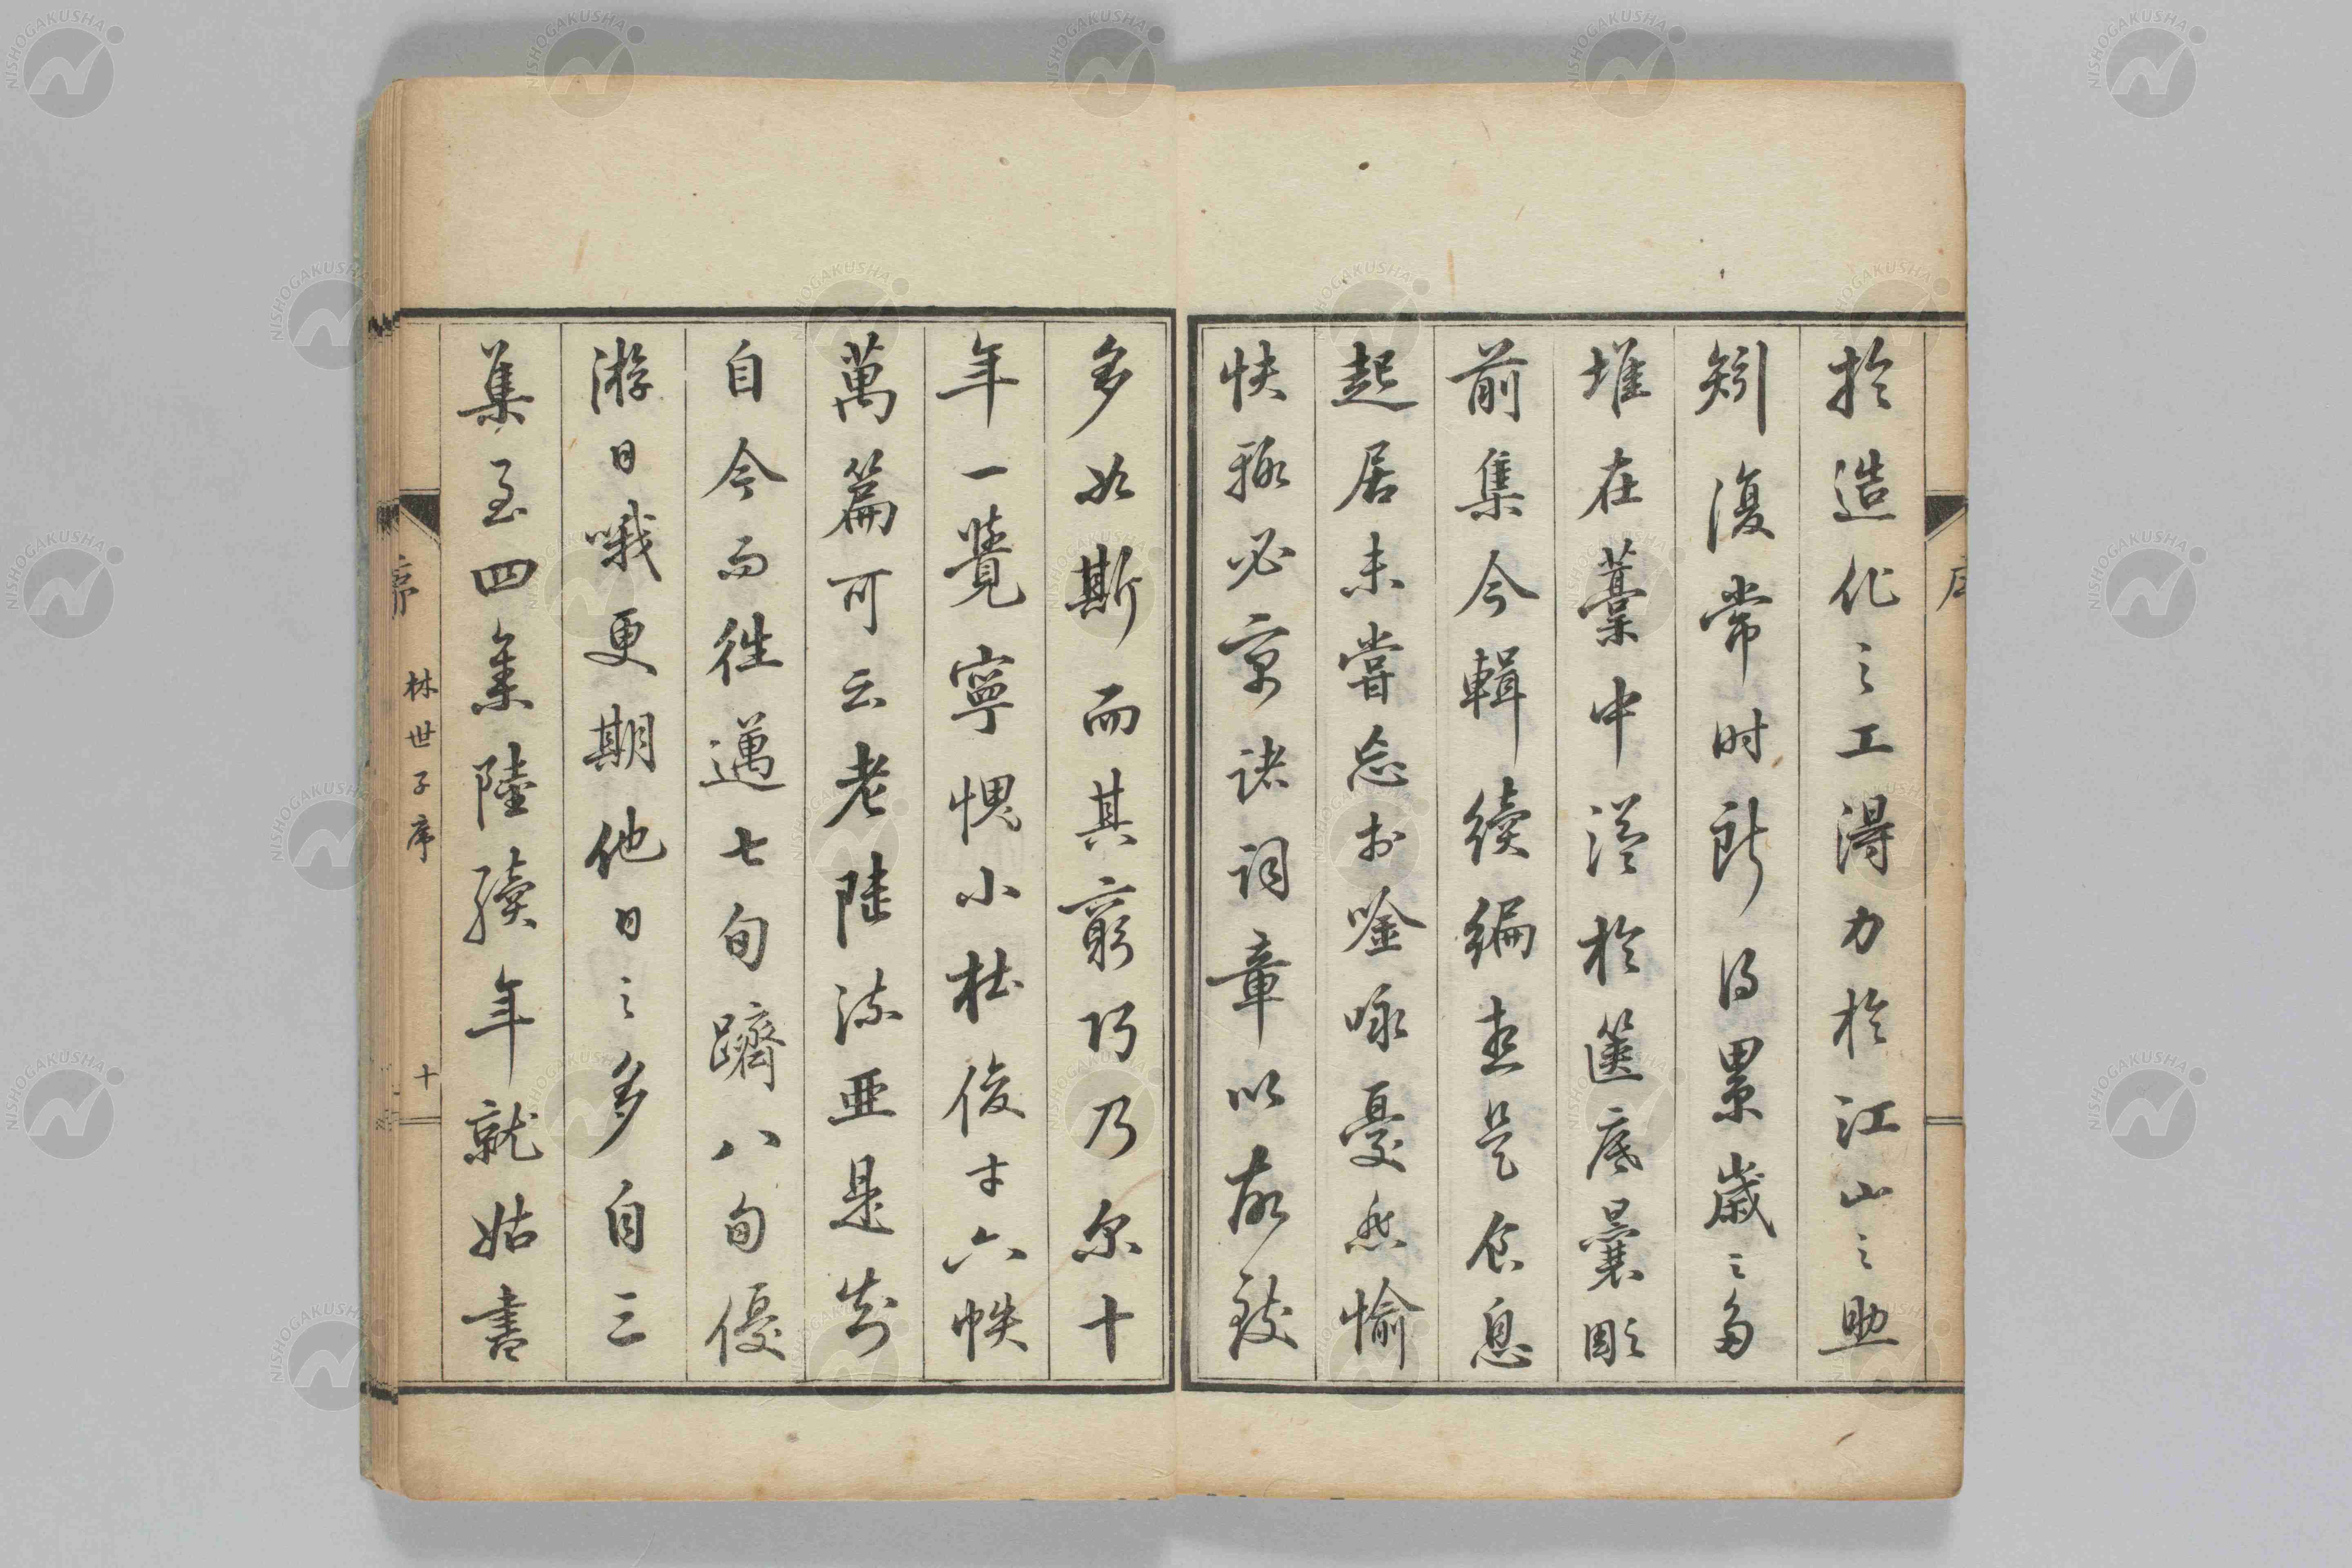 序
於造化之工得力於江山之助
矧復常时所得累歲之多
堆在藁中溢於篋底曩彫
前集今輯續編壹是食息
起居未嘗忘於唫咏憂愁愉
快輙必寓諸詞章以故致
多如斯而其窮巧乃尔十
年一覺寧愧小杜俊才六帙
萬篇可云老陸流亞是
自今而往邁七旬躋八旬優
游日哦更期他日之多自三
集至四集陸續年就姑書
序 林世子序 十
NISHOGAKUSHA